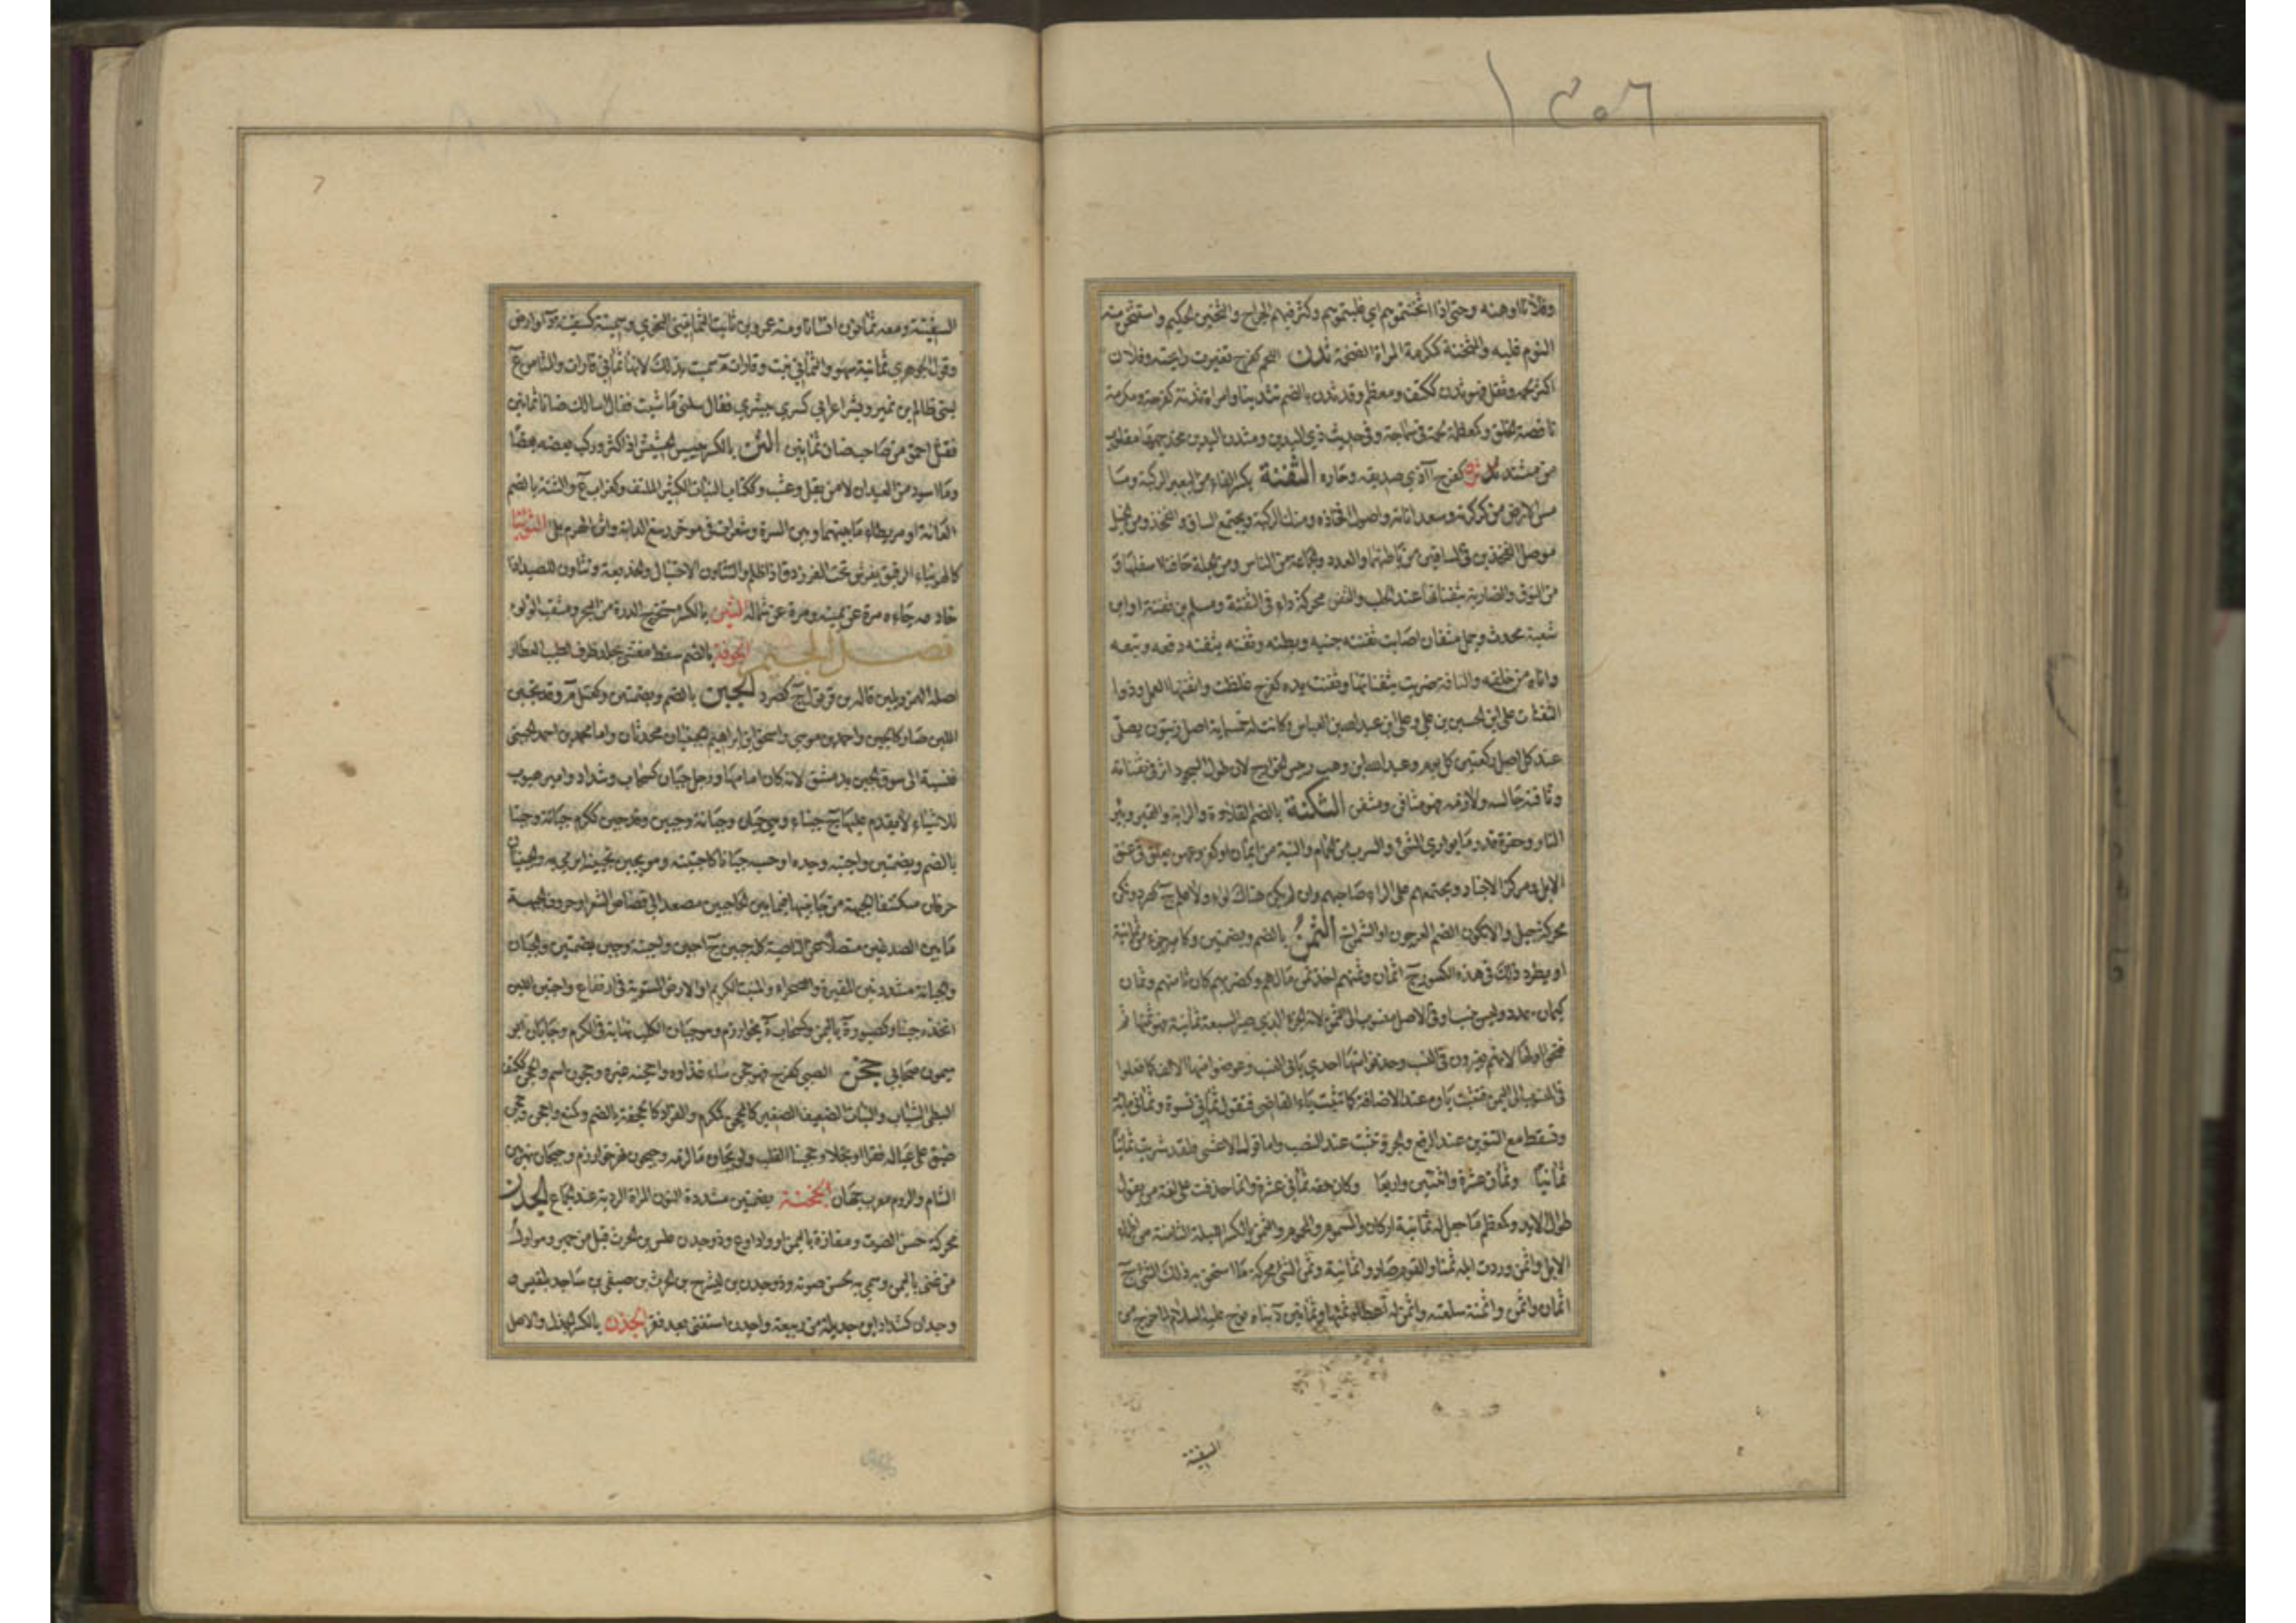 وفلانا اوهنه وحتى اذا اثخنتموهم اي غلبتموهم وكثر فيهم الجراح والثخين الحكيم واستثخن منه
النوم غلبه والمثخنة كمكرمة المراة الضخمة ثدن اللحم كفرح تغيرت رايحته وفلان
اكثر لحمه وثقل فهو ثدن ككتف ومعظم وقد ثدن بالضم تثدينا وامراة ثدنة كفرحة ومكرمة
ناقصة الخلق وكمعظمة لحمة في سماجة وفي حديث ذي اليدين ومثدن اليدين مخدجهما مقلوب
من مثند ثرن كفرح آذي صديقه وجاره الثفنة بكسر الفاء من البعير الركبة وما
مس الارض من كركرته وسعداناته واصول افخاذه ومنك الركبة ومجتمع الساق والفخذ ومن الخيل
موصل الفخذين في الساقين من باطنهما والعدد والجماعة من الناس ومن الجلة حافتا اسفلها و
من النوق الضاربة بثفناتها عند الحلب والثفن محركة داء في الثفنة ومسلم بن ثفنة او ابن
شعبة محدث وجمل مثفان اصابت ثفنته جنبه وبطنه وثفنه يثفنه دفعه وتبعه
واتاه من خلفه والناقة ضربت بثفناتها وثفنت يده كفرح غلظت واثفنها العمل وذوا
الثفنات علي ابن الحسين بن علي وعلي ابن عبد الله بن العباس وكانت له خمسماية اصل زيتون يصلي
عند كل اصل ركعتين كل يوم وعبد الله بن وهب رئيس الخوارج لان طول السجود اثر في ثفناته
وثافنه جالسه ولازمه فهو مثافن ومثفن الثكنة بالضم القلادة والراية والقبر وبئر
النار وحفرة قدر ما يواري الشيء والسرب من الحمام والنية من ايمان او كفر وعهن يعلق في عنق
الابل ومركز الاجناد ومجتمعهم على لواء صاحبهم وان لم يكن هناك لواء ولا علم ج كصرد وثكن
محركة جبل والاثكون بالضم العرجون او الشمراخ الثمن بالضم وبضمتين وكامير جزء من ثمانية
او يطرد ذلك في هذه الكسور ج اثمان وثمنهم اخذ ثمن مالهم وكضربهم كان ثامنهم وثمان
كيمان عدد وليس بنسب او في الاصل منسوب الى الثمن لانه الجزء الذي صير السبعة ثمانية فهو ثمنها ثم
فتحوا اولها لانهم يغيرون في النسب وحذفوا منها احدى ياءي النسب وعوضوا منها الالف كما فعلوا
في المنسوب الى اليمن فتثبت ياؤه عند الاضافة كما تثبت ياء القاضي فتقول ثماني نسوة وثماني مائة
وتسقط مع التنوين عند الرفع والجر وتثبت عند النصب واما قول الاعشى ولقد شربت ثمانيا
ثمانيا وثمان عشرة واثنتين واربعا وكان حقه ثماني عشرة وانما حذفت على لغة من يقول
طوال الايد وكمعظم ما جعل له ثمانية اركان والمسموم والمحموم والثمن بالكسر الليلة الثامنة من اظماء
الابل واثمن وردت ابله ثمنا والقوم صاروا ثمانية وثمن الشيء محركة ما استحق به ذلك الشيء ج
اثمان واثمن واثمنه سلعته واثمن له اعطاه ثمنها وثمانين د بناه نوح عليه السلام لما خرج من
السفينة
السفينة ومعه ثمانون انسانا ومنه عمرو بن ثابت الثمانيني النحوي وثمينة كسفينة د او ارض
وقول الجوهري ثمانية سهو والثماني نبت وقارات م سميت بذلك لانها ثماني قارات والثامن ع
لبني ظالم بن نمير وبشر اعرابي كسرى ببشرى فقال سلني ما شئت فقال اسالك ضانا ثمانين
فقيل احمق من صاحب ضان ثمانين الثن بالكسر يبيس الحشيش اذا كثر وركب بعضه بعضا
وما اسود من العيدان لا من بقل وعشب وككتاب النبات الكثير الملتف وكغراب ع والثنة بالضم
العانة او مريطاء ما بينها وبين السرة وشعرات في موخر رسغ الدابة واثن الهرم بلي الثويناء
كالهويناء الرقيق يفرش تحت الفرزدقة اذا ظلم والتثاون الاحتيال والخديعة وتثاون للصيد اذا
خادعه جاءه مرة عن يمينه ومرة عن شماله الثين بالكسر مستخرج الدرة من البحر ومثقب اللؤلؤ
فصل الجيم الجونة بالضم سفط مغشى بجلد ظرف لطيب العطار
اصله الهمز ويلين قاله بن قرقول ج كصرد الجبن بالضم وبضمتين وكعتل م وقد تجبن
اللبن صار كالجبن واحمد بن موسى واسحق ابن ابراهيم الجبنيان محدثان واما محمد بن احمد الجبني
فنسبة الى سوق الجبن بدمشق لانه كان امامها ورجل جبان كسحاب وشداد وامير هيوب
للاشياء لا يقدم عليها ج جبناء وهي جبان وجبانة وجبين وقد جبن ككرم جبانة وجبنا
بالضم وبضمتين واجبنه وجده او حسبه جبانا كاجتبنه وهو يجبن تجبينا يرمى به والجبينان
حرفان مكتنفا الجبهة من جانبيها فيما بين الحاجبين مصعدا الى قصاص الشعر او حروف الجبهة
ما بين الصدغين متصلا عدى الناصية كله جبين ج اجبن واجبنة وجبن بضمتين والجبان
والجبانة مشددتين المقبرة والصحراء والمنبت الكريم او الارض المستوية في ارتفاع واجتبن اللبن
اتخذه جبنا وكصبورة ة باليمن وكسحابة ة بخوارزم وهو جبان الكلب نهاية في الكرم وجابان ابو
ميمون صحابي جحن الصبي كفرح فهو جحن ساء غذاوه واجحنه غيره وجحون اسم والجحن ككتف
البطي الشباب والنبات الضعيف الصغير كالمجحن كمكرم والقراد كالجحنة بالضم وكمنع واجحن وجحن
ضيق على عياله فقرا او بخلا وجحينا القلب ولويحاء ما لزمه وجيحون نهر خوارزم وجيحان نهر بين
الشام والروم معرب جهان الجخنة بضمتين مشددة النون المراة الردية عند الجماع الجدن
محركة حسن الصوت ومفازة باليمن او واد او ع وذو جدن علس بن الحرث قيل من حمير وهو اول
من غنى باليمن وسمي به لحسن صوته وذو جدن بن ليشرح بن الحرث بن صيفي بن سبا جد بلقيس
وجدان كشداد ابن جديلة من ربيعة واجدن استغنى بعد فقر الجذن بالكسر الجذل والاصل